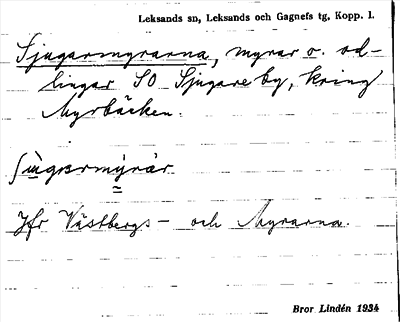 Leksands sn, Leksands och Gagnefs tg, Kopp. l.
Sjugarmyrarna, myrar o. od-
lingar SO Sjugare by, kring
Myrbäcken.
ʃùgɐrmýràr
Jfr Västbergs- och Myrarna.
Bror Lindén 1934